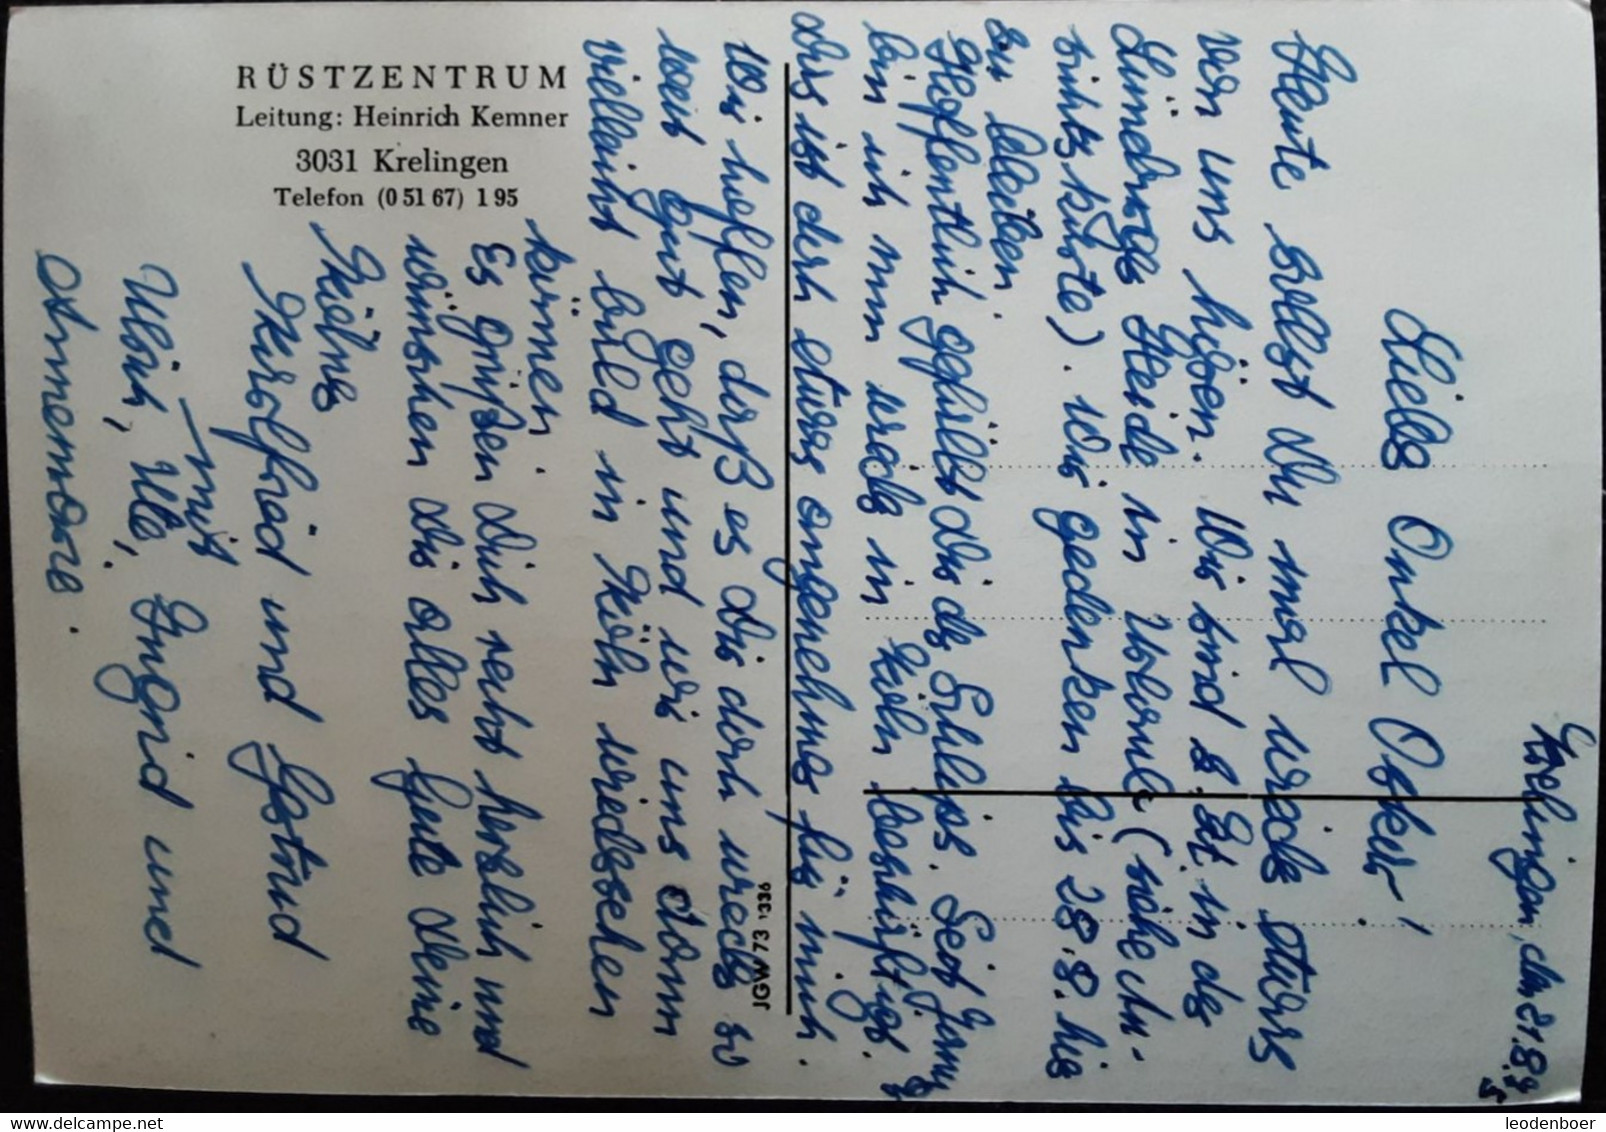 RÜSTZENTRUM
Leitung: Heinrich Kemner
3031 Krelingen
Telefon (0 51 67) 1 95
JGW 73 1336
Krelingen, den 21.8.75
Lieber Onkel Oskar!
Heute sollst Du mal wieder etwas
von uns hören. Wir sind z. Zt. in der
Lüneburger Heide in Urlaub (siehe An-
sichtskarte). Wir gedenken bis 28.8. hier
zu bleiben.
Hoffentlich gefällt Dir der Schlips. Seit
bin ich nun wieder in Köln beschäftigt.
Das ist doch etwas angenehmer für mich.
Wir hoffen, daß es Dir doch wieder so
weit gut geht und wir uns dann
vielleicht bald in Köln wiedersehen
können.
Es grüßen Dich recht herzlich und
wünschen Dir alles Gute Deine
Kölner
Karlfried und Gertrud
mit
Ulrich, Ute, Ingrid und
Annemarie.
leodenboer